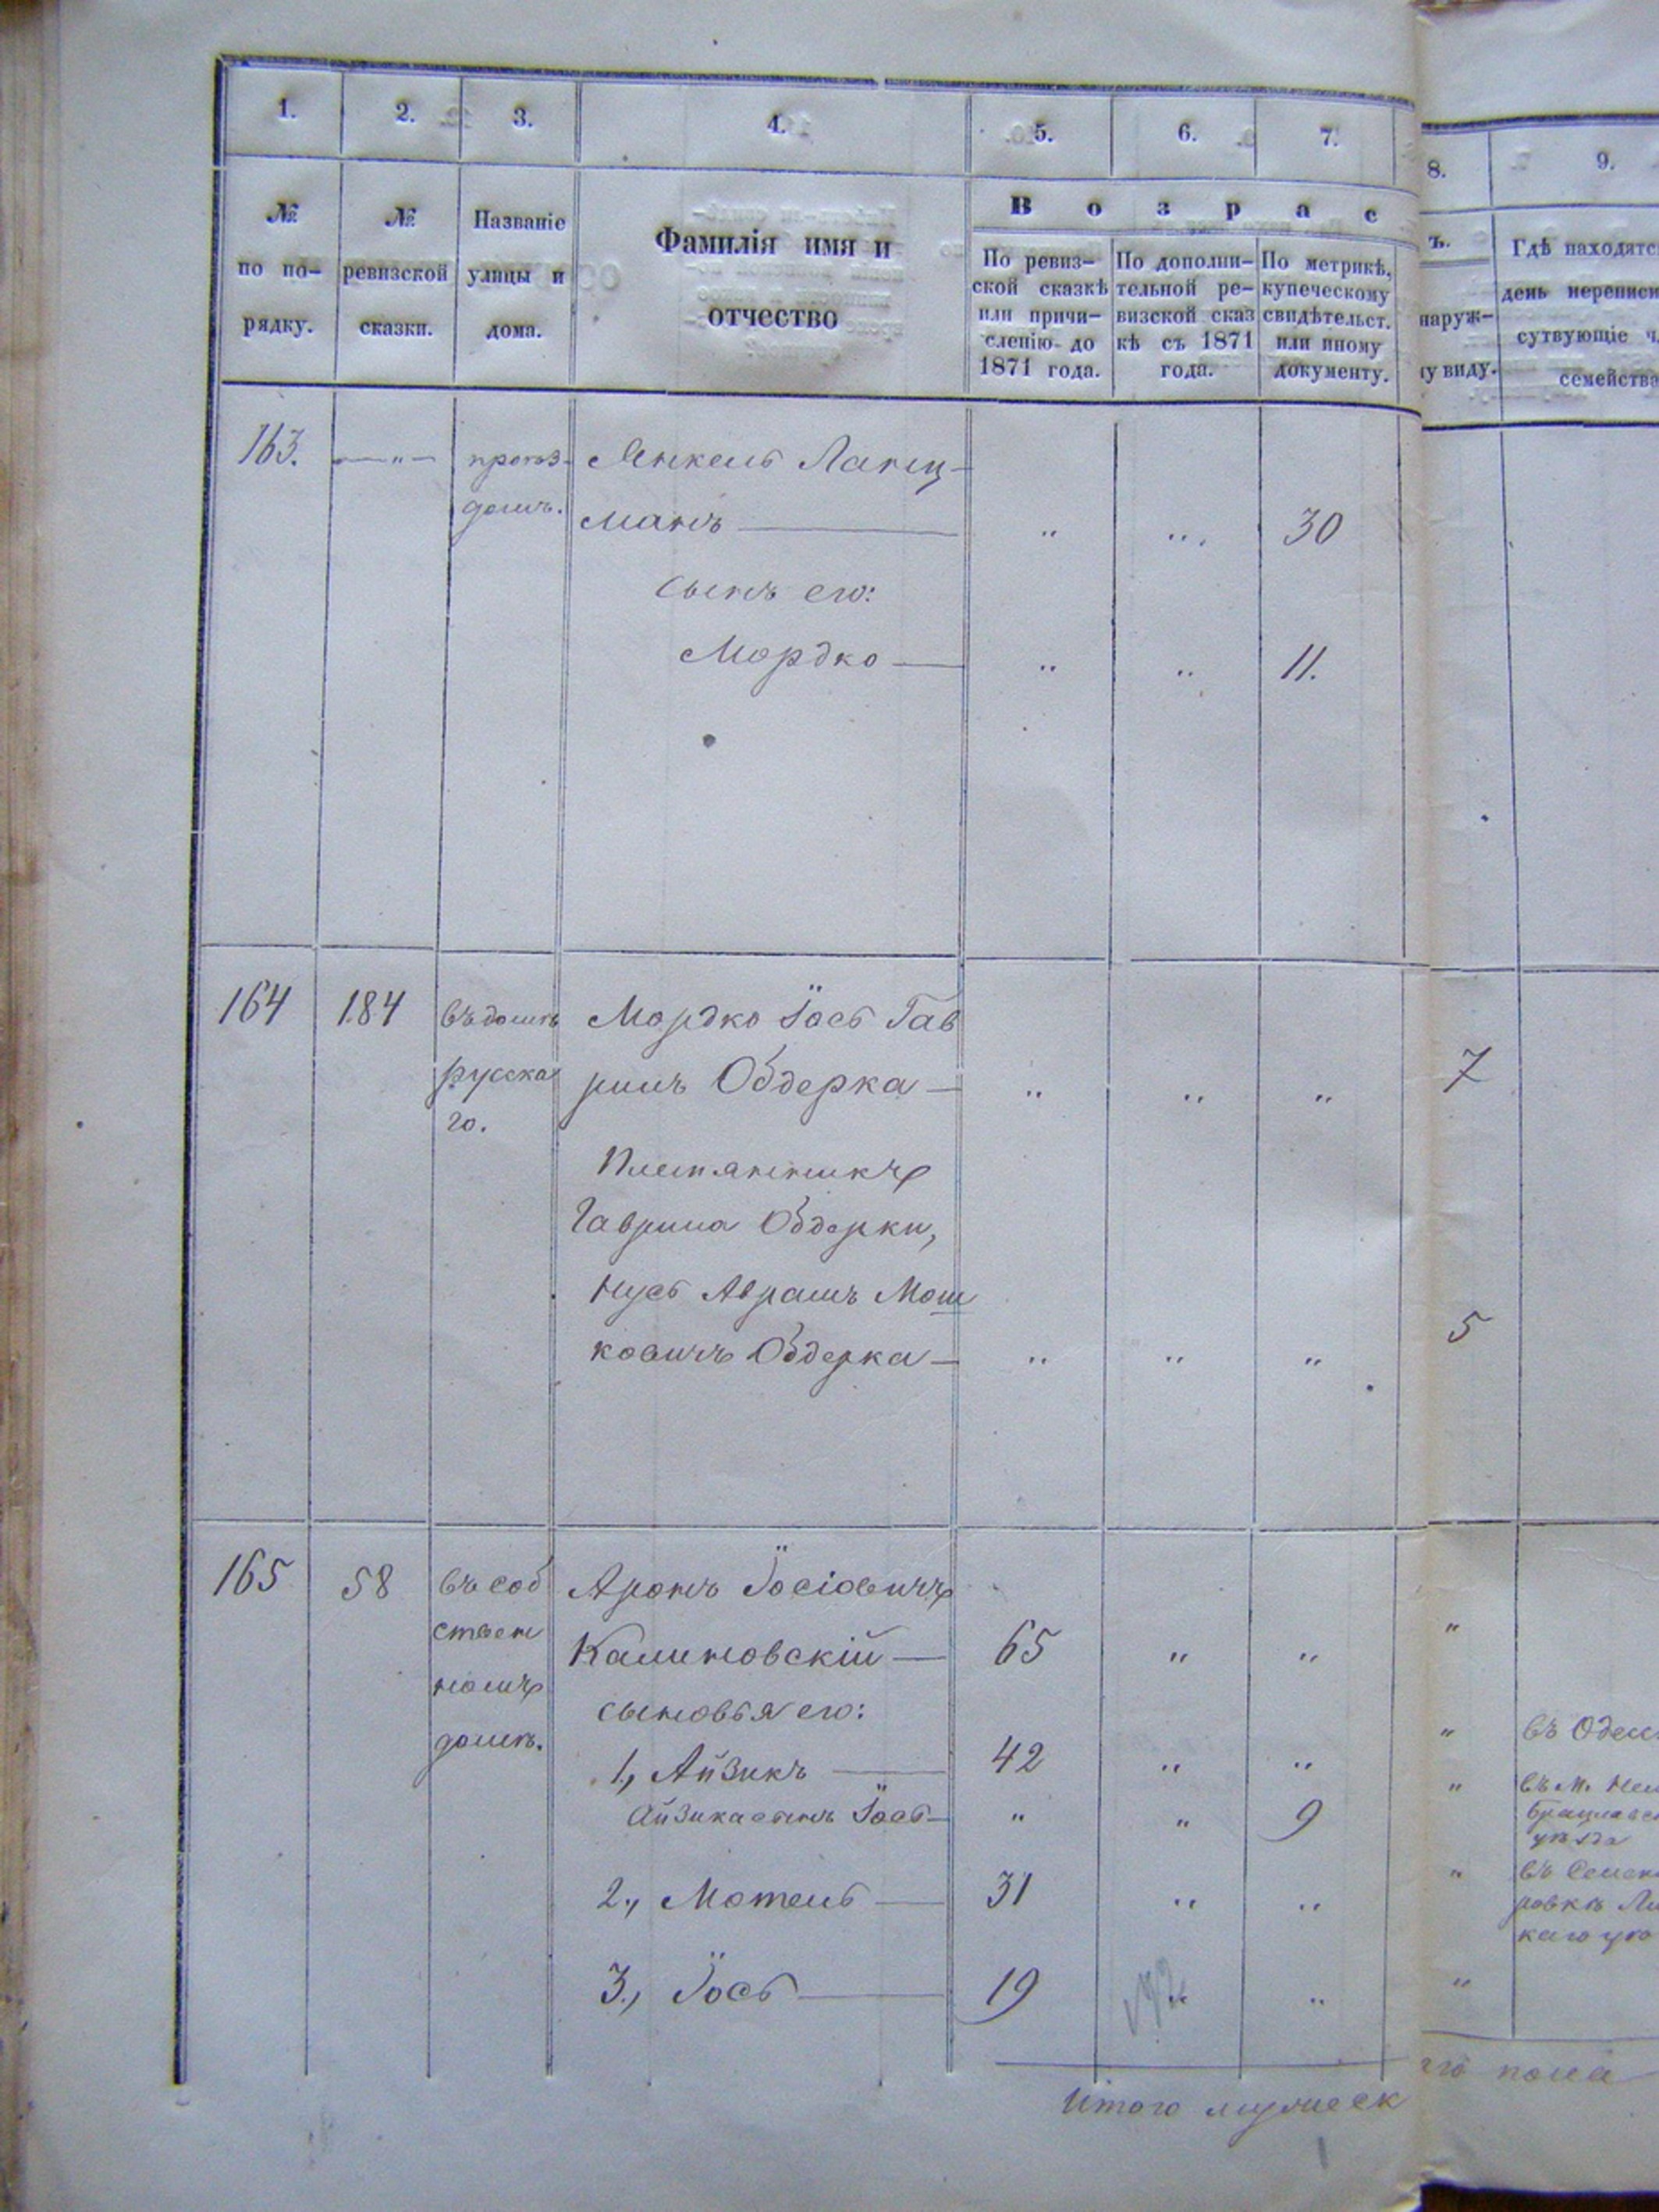 1. 2. 3. 4. 5. 6. 7. 8. 9.
№ по порядку.
№ ревизской сказки.
Названіе улицы и дома.
Фамилія имя и отчество
В о з р а с
ъ.
По ревиз-
ской сказкѣ
или причи-
сленію до
1871 года.
По дополни-
тельной ре-
визской сказ
кѣ съ 1871
года.
По метрикѣ,
купеческому
свидѣтельст.
или иному
документу.
наруж-
у виду.
Гдѣ находятс
день переписи
сутвующіе ч
семейства
163. — " —
домъ.
Янкель Ланц-
манъ — " " 30
Сынъ его:
Мордко — " " 11.
164 184
въ домѣ
русска
го.
Мордко Іось Гав
рилъ Обдерка — " " " 7
Племянникъ
Гаврила Обдерки,
Нусь Аврамъ Мош
ковичъ Обдерка — " " " 5
165 58
въ соб
ствен
номъ
домѣ.
Аронъ Іосіовичъ
Калиновскій — 65 " " "
сыновья его:
1., Айзикъ — 42 " " " въ Одесс
Айзика сынъ Іось — " " 9 " въ м. Нем
Брацлавск
уѣзда
2., Мотель — 31 " " "
ровкѣ Ли
каго уѣ
3., Іось — 19 " " "
Итого мужеск
го пола